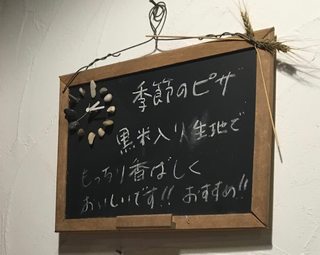 季節のピザ
黒米入り生地で
もっちり香ばしく
おいしいです!! おすすめ!!